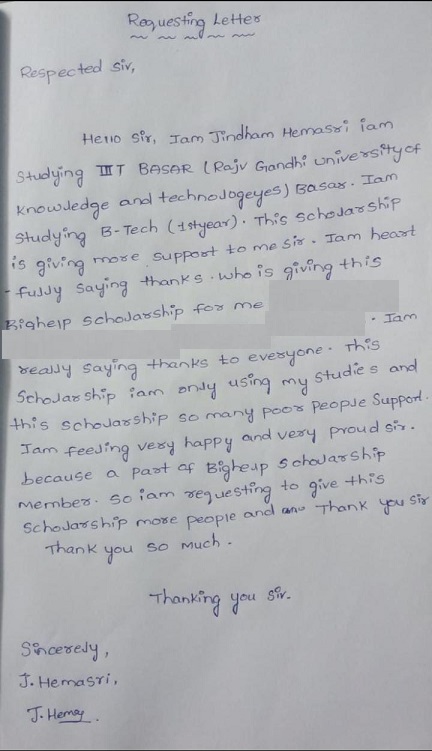 Requesting Letter
Respected sir,
Hello Sir, Iam Jindham Hemasri iam
Studying IIIT BASAR (Rajv Gandhi university of
Knowledge and technologeyes) Basar. Iam
Studying B-Tech (1styear). This scholarship
is giving more support to me sir. Iam heart
-fully saying thanks. who is giving this
Bighelp Scholarship for me
. Iam
really saying thanks to everyone. This
Scholarship iam only using my studies and
this scholarship so many poor people Support.
Iam feeling very happy and very proud sir.
because a part of Bighelp scholarship
member. So iam requesting to give this
Scholarship more people and Thank you sir
Thank you so much.
Thanking you sir.
Sincerely,
J. Hemasri,
J. Hema